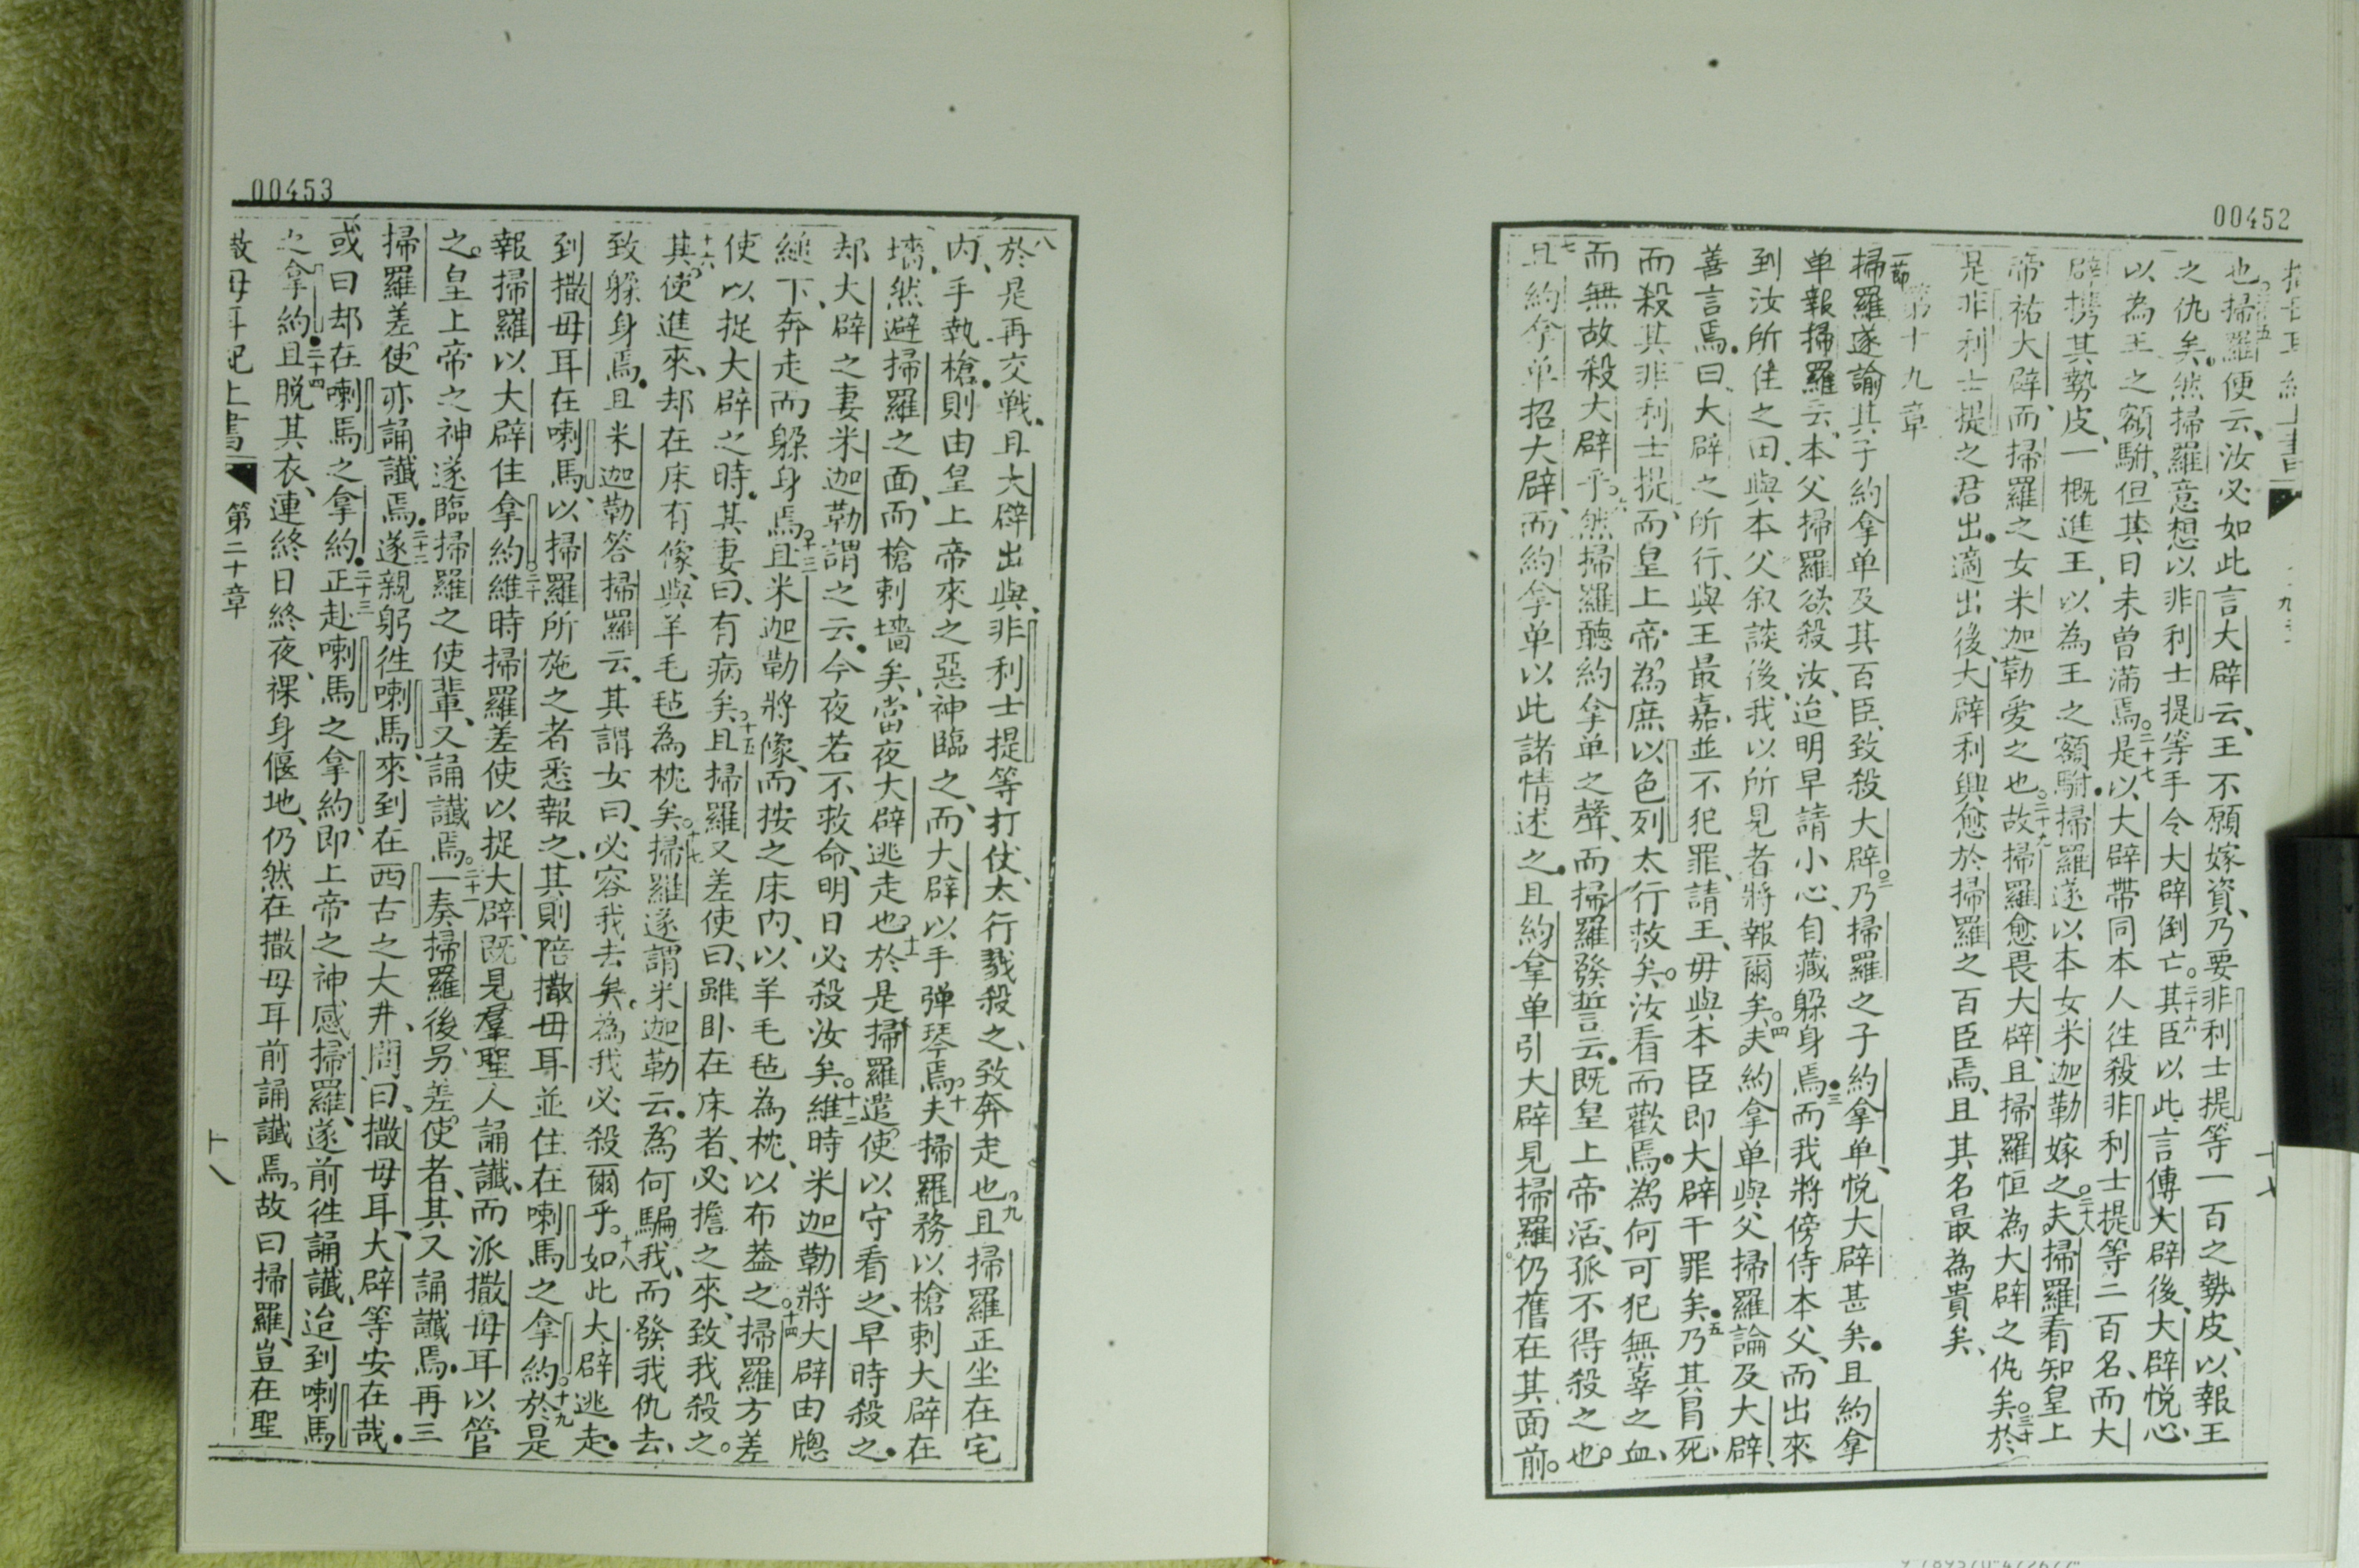 00452
也。掃羅便云、汝必如此言大辟云、王不願嫁資、乃要非利士提等一百之勢皮、以報王
之仇矣。然掃羅意想以非利士提等手令大辟倒亡。二十六其臣以此言傳大辟後、大辟悅心、
以為王之額駙、但其日未曾滿焉。二十七是以大辟帶同本人徃殺非利士提等二百名、而大
辟携其勢皮、一概進王、以為王之額駙。掃羅遂以本女米迦勒嫁之夫。二十八掃羅看知皇上
帝祐大辟、而掃羅之女米迦勒愛之也。二十九故掃羅愈畏大辟、且掃羅恒為大辟之仇矣。三十於
是非利士提之君出。適出後、大辟利興愈於掃羅之百臣焉、且其名最為貴矣、
第十九章
一節掃羅遂諭其子約拿单及其百臣、致殺大辟。二乃掃羅之子約拿单、悅大辟甚矣。且約拿
单報掃羅云、本父掃羅欲殺汝、汝迨明早請小心、自藏躲身焉。三而我將傍侍本父、而出來
到汝所住之田、與本父叙談後、我以所見者將報爾矣。四夫約拿单與父掃羅論及大辟、
善言焉。曰、大辟之所行、與王最嘉、並不犯罪、請王、毋與本臣即大辟干罪矣。五乃其冐死、
而殺其非利士提、而皇上帝為庶以色列太行救矣。汝看而歡焉。為何可犯無辜之血、
而無故殺大辟乎。然掃羅聽約拿单之聲、而掃羅發誓云、既皇上帝活、孤不得殺之也。
七且約拿单招大辟、而約拿单以此諸情述之。且約拿单引大辟見掃羅。仍舊在其面前。
十七
00453
八於是再交戰、且大辟出與、非利士提等打仗、太行戮殺之、致奔走也。九且掃羅正坐在宅
内、手執槍。則由皇上帝來之惡神臨之、而大辟以手弹琴焉。十夫掃羅務以槍刺大辟在
墻、然避掃羅之面、而槍刺墻矣、當夜大辟逃走也。十一於是掃羅遣使以守看之、早時殺之。
却大辟之妻米迦勒謂之云、今夜若不救命、明日必殺汝矣。十二維時米迦勒將大辟由牕
縋下、奔走而躲身焉。十三且米迦勒將像、而按之床内、以羊毛毡為枕、以布葢之。十四掃羅方差
使以捉大辟之時。其妻曰、有病矣。十五且掃羅又差使曰、雖卧在床者、必擔之來、致我殺之。
十六其使進來、却在床有像、與羊毛毡為枕矣。十七掃羅遂謂米迦勒云、為何騙我、而發我仇去、
致躲身焉。且米迦勒答掃羅云、其謂女曰、必容我去矣。為我必殺爾乎。十八如此大辟逃走。
到撒毋耳在喇馬、以掃羅所施之者悉報之、其則陪撒毋耳並住在喇馬之拿約。十九於是
報掃羅以大辟住拿約。二十維時掃羅差使以捉大辟、既見羣聖人誦讖、而派撒毋耳以管
之。皇上帝之神遂臨掃羅之使輩、又誦讖焉。二十一奏掃羅後、另差使者、其又誦讖焉。再三
掃羅差使、亦誦讖焉。二十二遂親躬徃喇馬、來到在西古之大井、問曰、撒毋耳、大辟等安在哉。
或曰却在喇馬之拿約。二十三正赴喇馬之拿約、即上帝之神感掃羅、遂前徃誦讖、迨到喇馬
之拿約。二十四且脱其衣、連終日終夜、裸身偃地、仍然在撒毋耳前誦讖焉。故曰掃羅、豈在聖
撒毋耳記上書　第二十章
十八